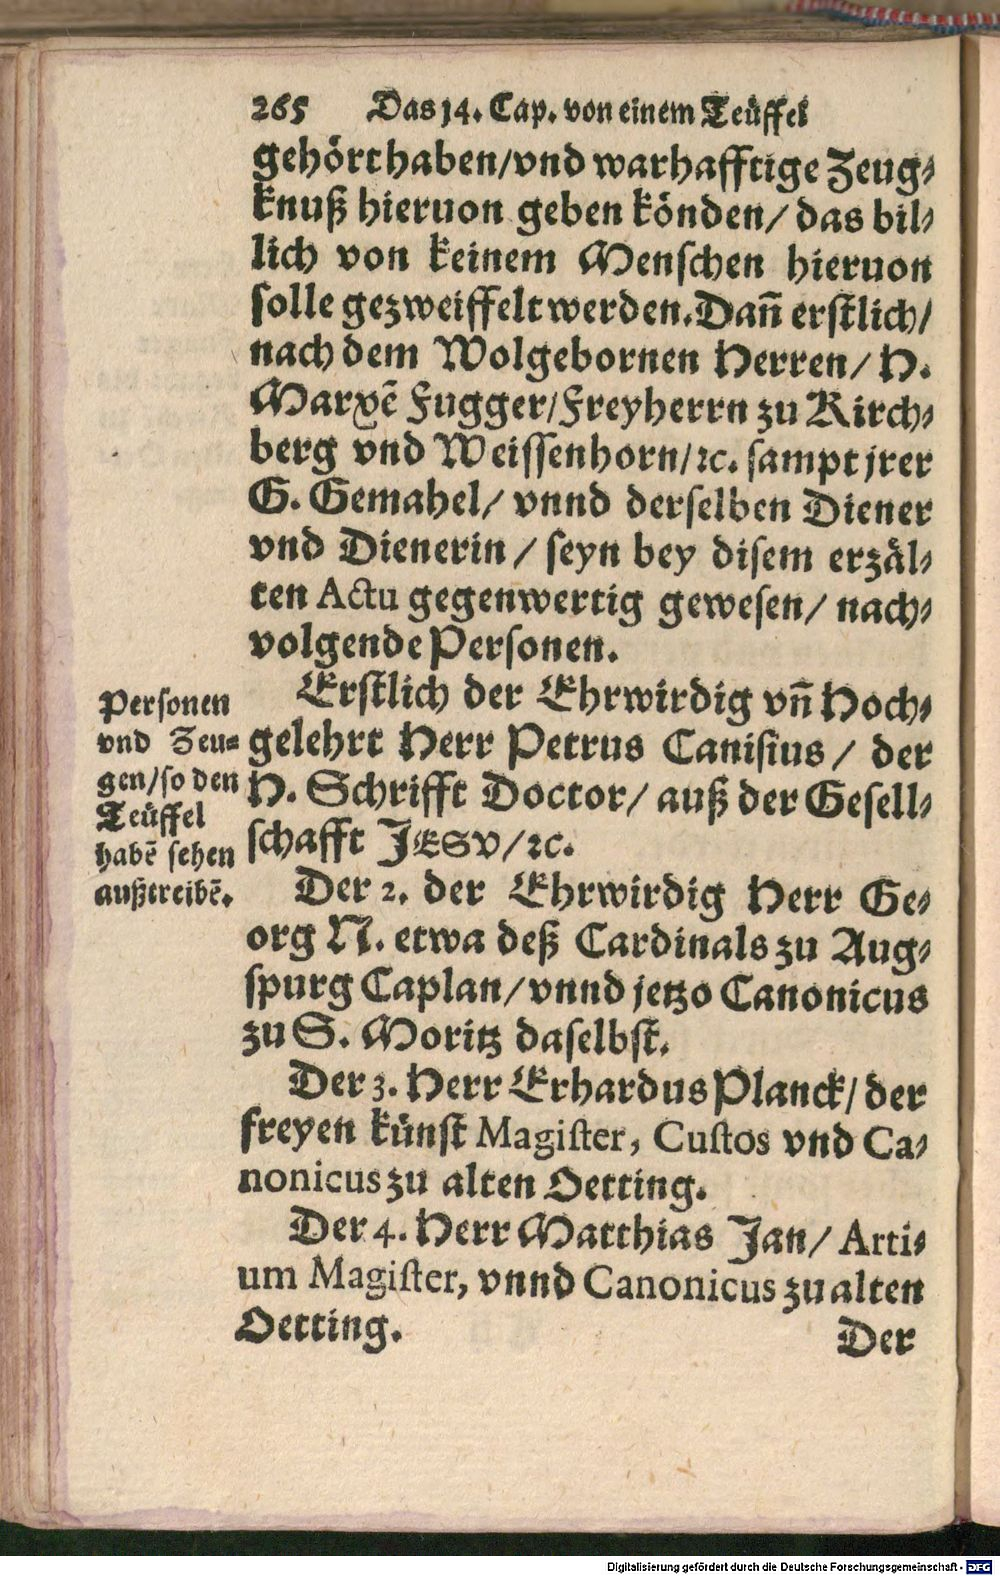 265 Das 14. Cap. von einem Teüffel
gehört haben/vnd warhafftige Zeug⸗
knuß hieruon geben könden/ das bil⸗
lich von keinem Menschen hieruon
solle gezweiffelt werden. Dañ erstlich/
nach dem Wolgebornen Herren/ H.
Marxē Fugger/Freyherrn zu Kirch⸗
berg vnd Weissenhorn/ꝛc. sampt jrer
G. Gemahel/ vnnd derselben Diener
vnd Dienerin / seyn bey disem erzäl⸗
ten Actu gegenwertig gewesen/ nach⸗
volgende Personen.
Personen
vnd Zeu⸗
gen/so den
Teüffel
habē sehen
außtreibē.
Erstlich der Ehrwirdig vñ Hoch⸗
gelehrt Herr Petrus Canisius / der
H. Schrifft Doctor/ auß der Gesell⸗
schafft JESV/ꝛc.
Der 2. der Ehrwirdig Herr Ge⸗
org N. etwa deß Cardinals zu Aug⸗
spurg Caplan/vnnd jetzo Canonicus
zu S. Moritz daselbst.
Der 3. Herr Erhardus Planck/ der
freyen künst Magister, Custos vnd Ca⸗
nonicus zu alten Oetting.
Der 4. Herr Matthias Jan/ Arti⸗
um Magister, vnnd Canonicus zu alten
Oetting.
Der
Digitalisierung gefördert durch die Deutsche Forschungsgemeinschaft - DFG